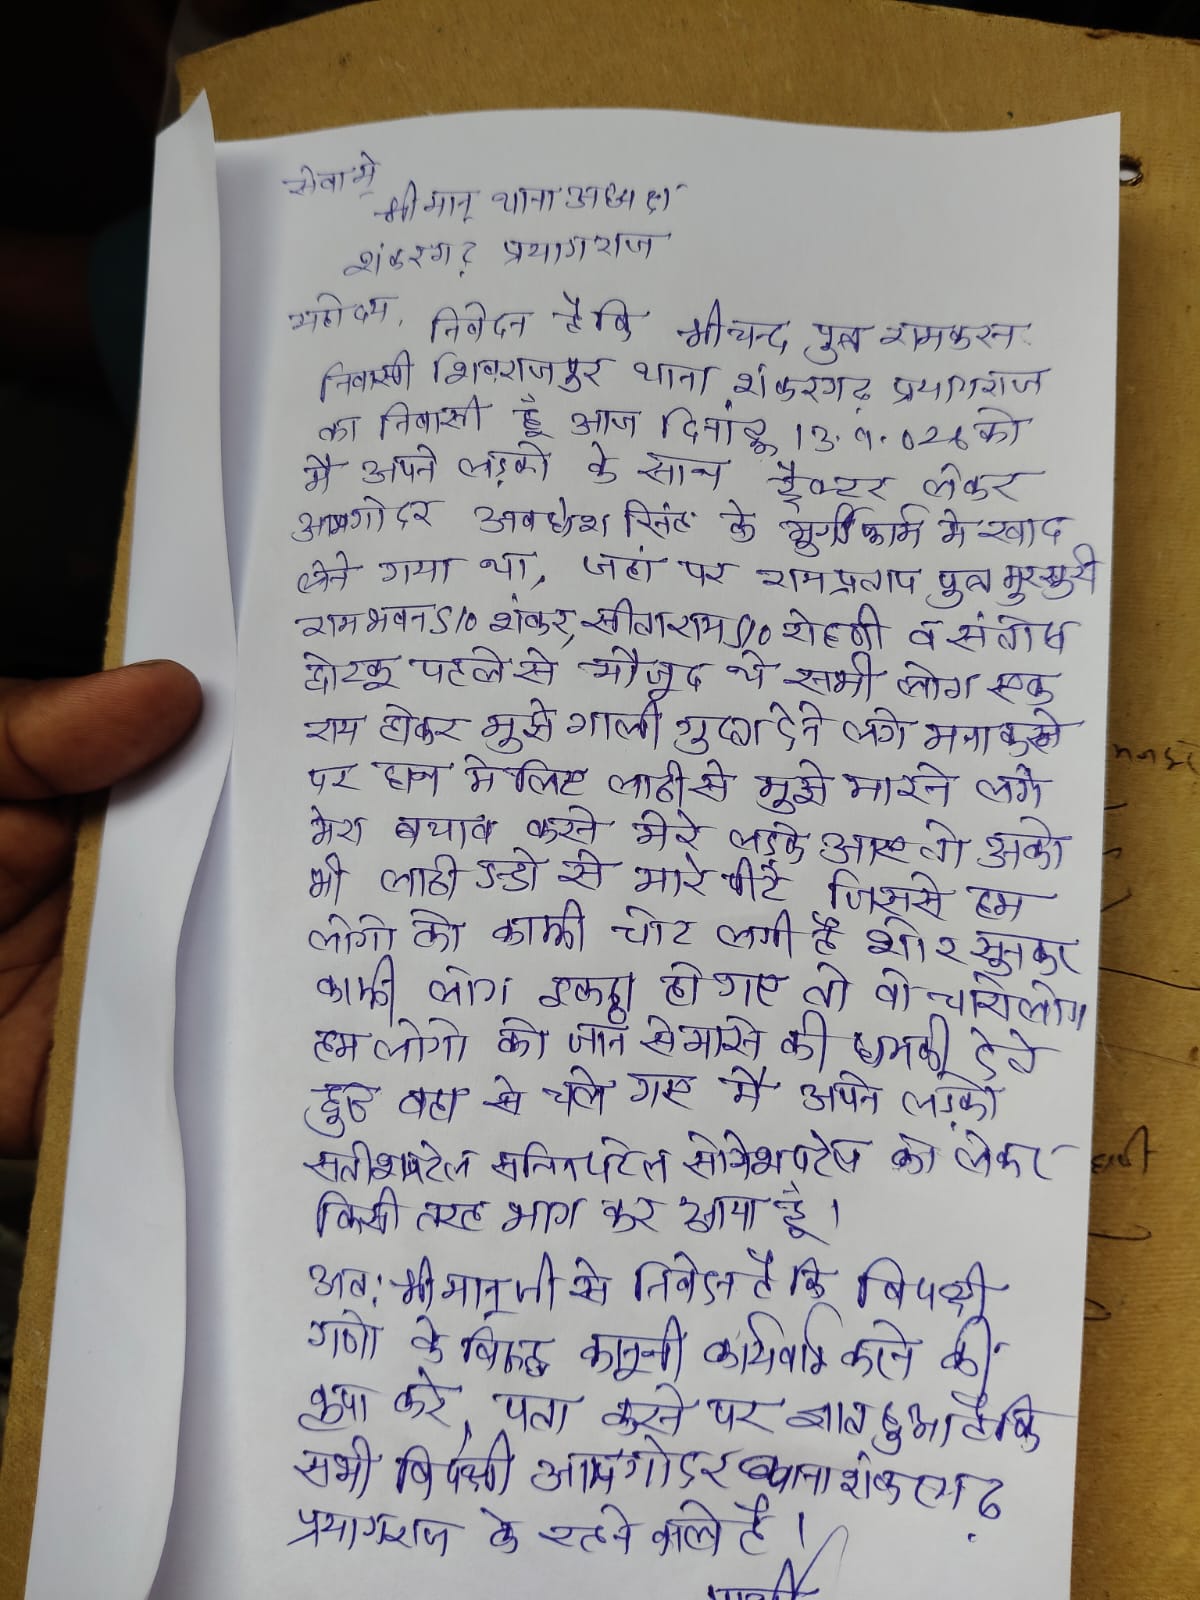 सेवा मे
श्रीमान् थाना अध्यक्ष
शंकरगढ़ प्रयागराज
महोदय, निवेदन है कि श्रीचन्द पुत्र रामकरन
निवासी शिवराजपुर थाना शंकरगढ़ प्रयागराज
का निवासी हूँ आज दिनांक 13.9.026 को
मै अपने लड़को के साथ ट्रैक्टर लेकर
आमगोदर अवधेश सिंह के मुर्गी फार्म मे खाद
लेने गया था, जहां पर रामप्रताप पुत्र
रामभवन S/o शंकर, सीताराम S/o व संतोष
पहले से मौजूद थे सभी लोग एक
राय होकर मुझे गाली गुप्ता देने लगे मना करने
पर हाथ मे लिए लाठी से मुझे मारने लगे
मेरा बचाव करने मेरे लड़के आए तो उनको
भी लाठी डन्डो से मारे पीटे जिससे हम
लोगो को काफी चोट लगी है शोर सुनकर
काफी लोग इकट्ठा हो गए तो वो चारो लोग
हम लोगो को जान से मारने की धमकी देते
हुए वहा से चले गए मै अपने लड़को
सतीश पटेल पटेल पटेल को लेकर
किसी तरह भाग कर आया हूँ।
अतः श्रीमान् जी से निवेदन है कि विपक्षी
गणो के विरुद्ध कानूनी कार्यवाही करने की
कृपा करे, पता करने पर ज्ञात हुआ है कि
सभी विपक्षी आमगोदर थाना शंकरगढ़
प्रयागराज के रहने वाले है।
प्रार्थी